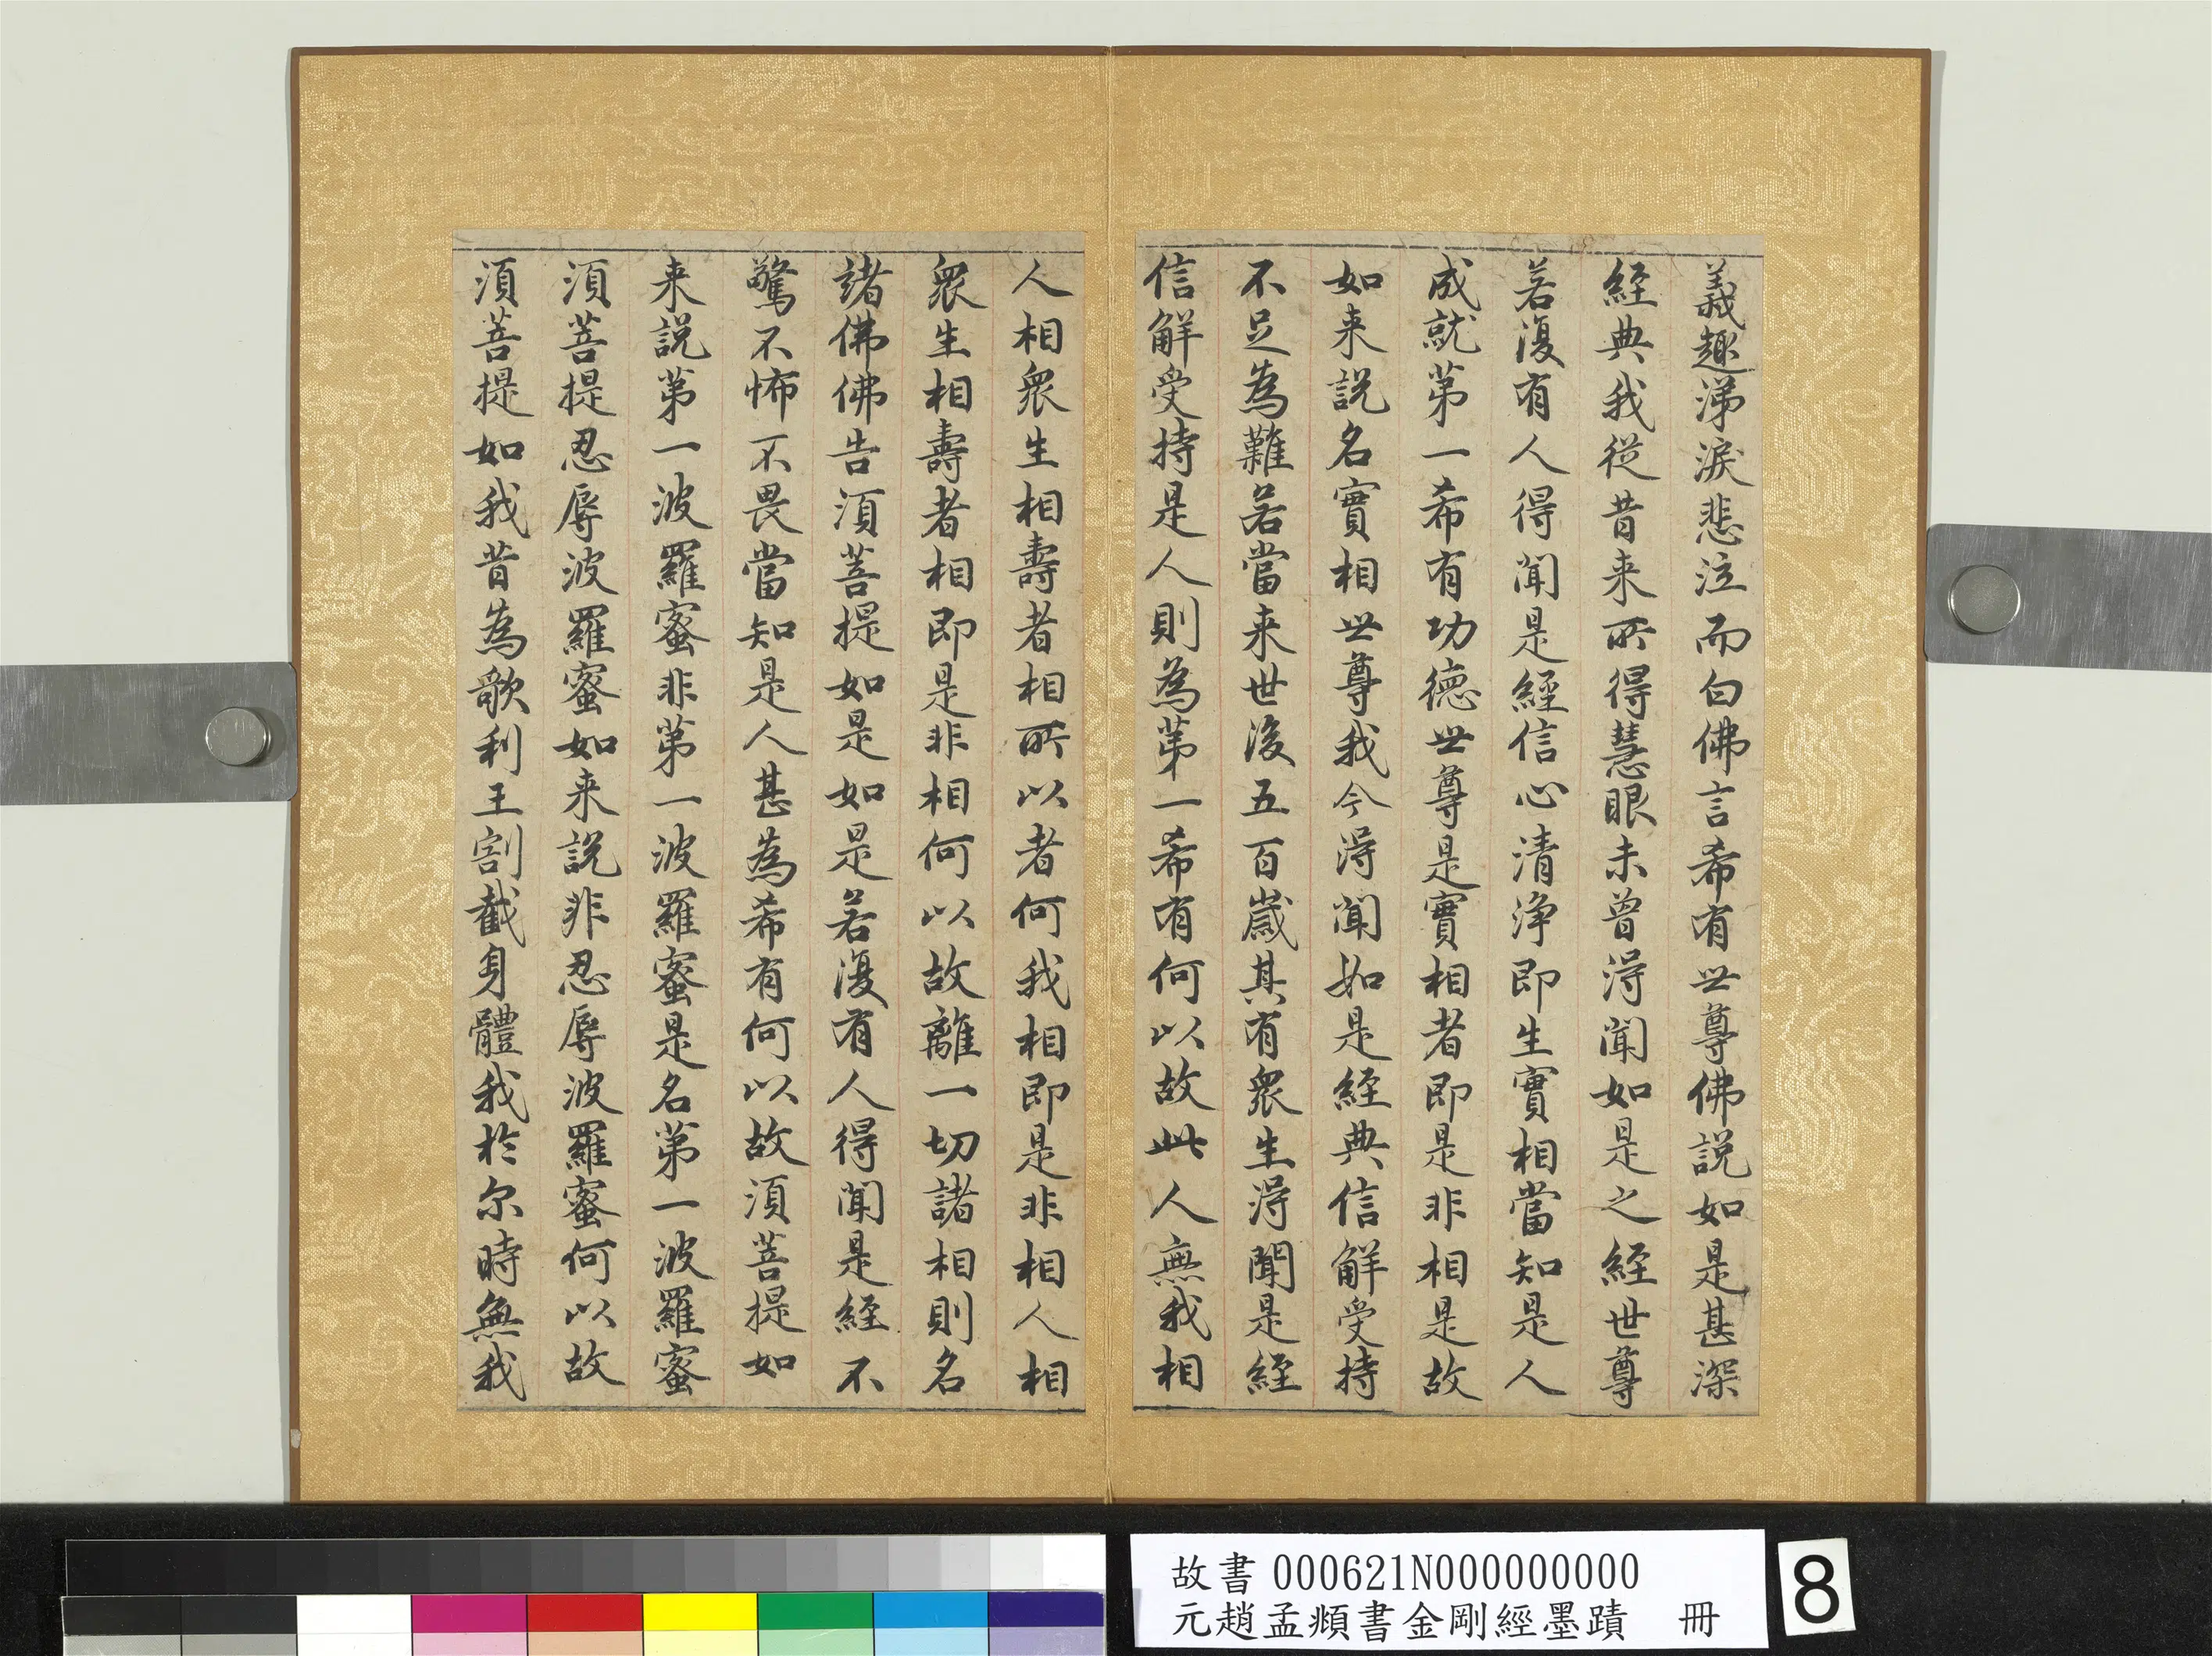 義趣涕淚悲泣而白佛言希有世尊佛說如是甚深
經典我從昔来所得慧眼未曾得聞如是之經世尊
若復有人得聞是經信心清淨即生實相當知是人
成就第一希有功德世尊是實相者即是非相是故
如来說名實相世尊我今得聞如是經典信解受持
不足為難若當来世後五百歲其有眾生得聞是經
信解受持是人則為第一希有何以故此人無我相
人相眾生相壽者相所以者何我相即是非相人相
眾生相壽者相即是非相何以故離一切諸相則名
諸佛佛告須菩提如是如是若復有人得聞是經不
驚不怖不畏當知是人甚為希有何以故須菩提如
来說第一波羅蜜非第一波羅蜜是名第一波羅蜜
須菩提忍辱波羅蜜如来說非忍辱波羅蜜何以故
須菩提如我昔為歌利王割截身體我於尔時無我
故書 000621N000000000
元趙孟頫書金剛經墨蹟 冊
8